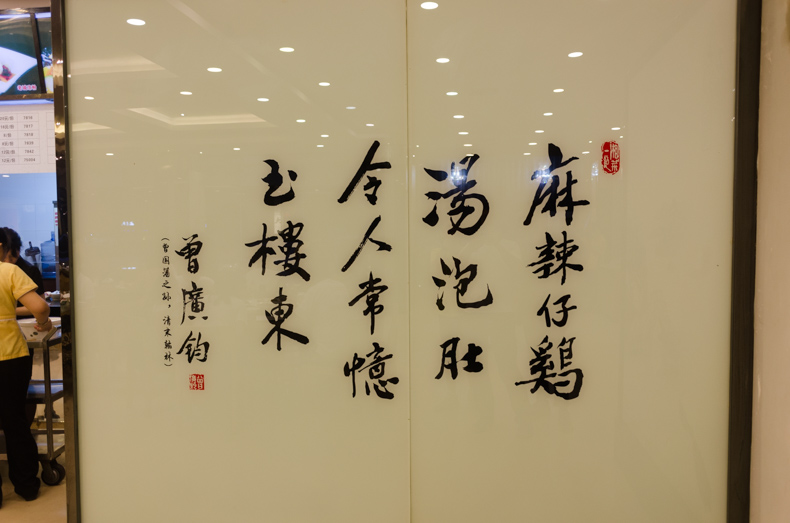 麻辣仔鷄
湯泡肚
令人常憶
玉樓東
曾廣鈞
(曾國藩之孫，清末翰林)